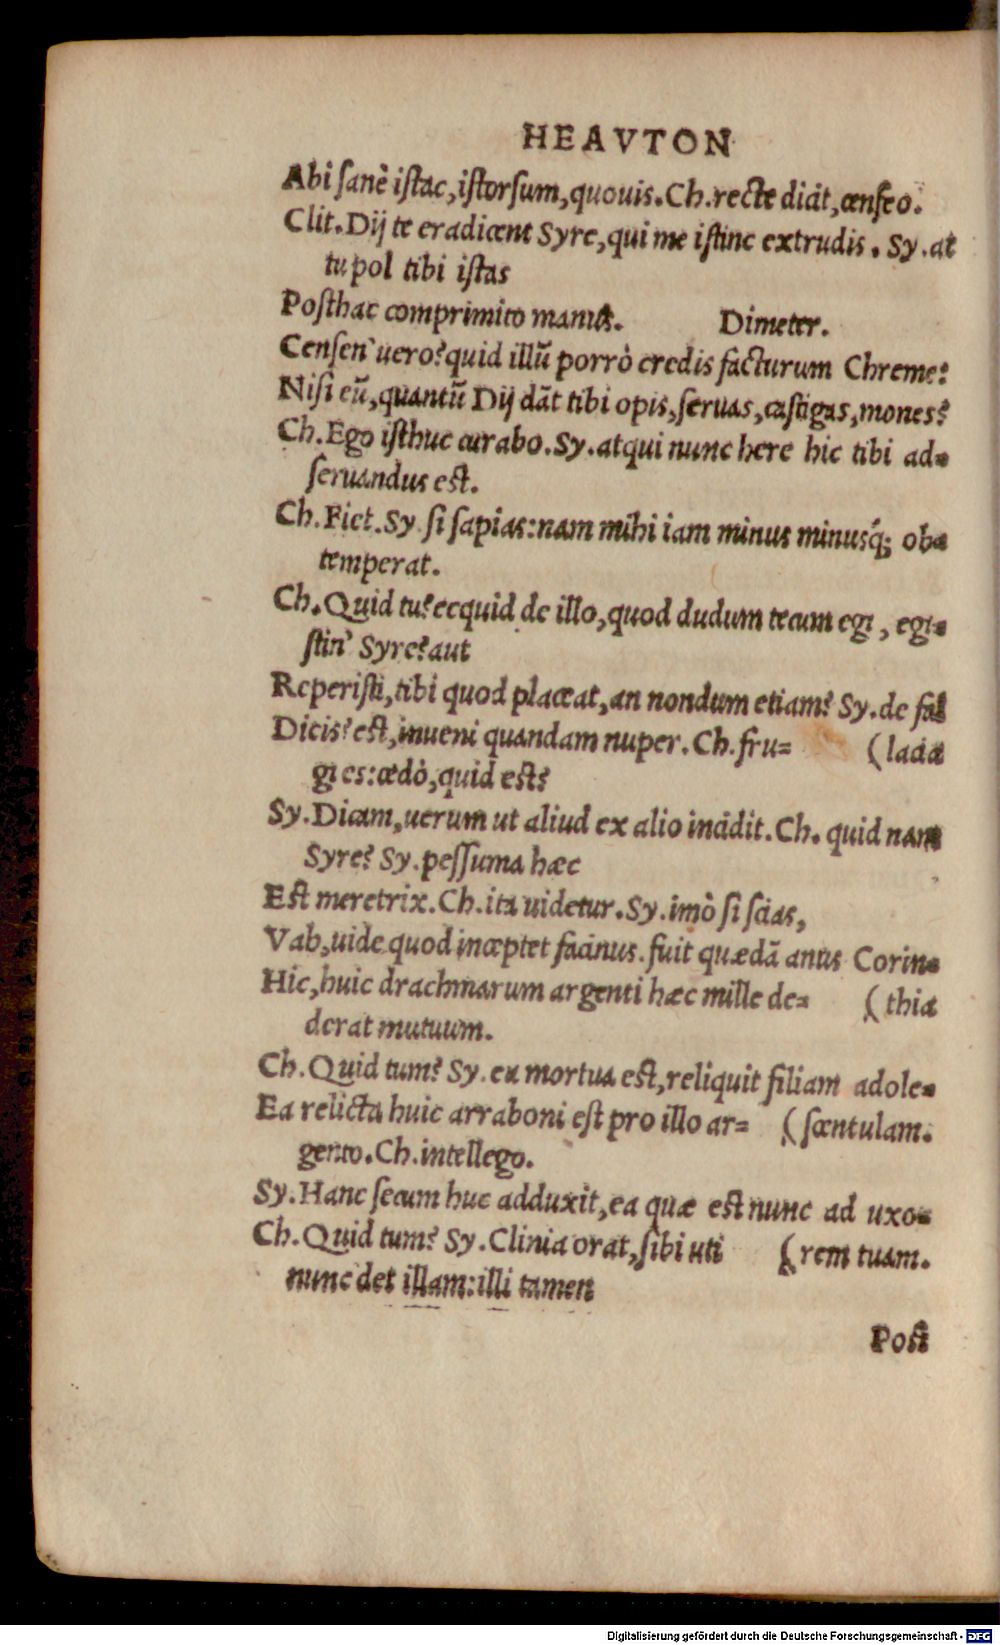 HEAVTON
Abi sanè istac, istorsum, quouis. Ch. recte dicit, censeo.
Clit. Dij te eradicent Syre, qui me istinc extrudis. Sy. at
tu pol tibi istas
Posthac comprimito manus. Dimeter.
Censen' uero? quid illũ porrò credis facturum Chreme?
Nisi eũ, quantũ Dij dãt tibi opis, seruas, castigas, mones?
Ch. Ego isthuc curabo. Sy. atqui nunc here hic tibi ad-
seruandus est.
Ch. Fiet. Sy si sapias: nam mihi iam minus minusq́; ob-
temperat.
Ch. Quid tu? ecquid de illo, quod dudum tecum egi, egi-
stin' Syre? aut
Reperisti, tibi quod placeat, an nondum etiam? Sy. de fal
Dicis? est, inueni quandam nuper. Ch. fru= (lacia
gi es: cedò, quid est?
Sy. Dicam, uerum ut aliud ex alio incidit. Ch. quid nam
Syre? Sy. pessuma hæc
Est meretrix. Ch. ita uidetur. Sy. imò si scias,
Vah, uide quod inceptet facinus. fuit quædã anus Corin-
Hic, huic drachmarum argenti hæc mille de= (thia
derat mutuum.
Ch. Quid tum? Sy. ea mortua est, reliquit filiam adole-
Ea relicta huic arraboni est pro illo ar= (scentulam.
gento. Ch. intellego.
Sy. Hanc secum huc adduxit, ea quæ est nunc ad uxo-
Ch. Quid tum? Sy. Clinia orat, sibi uti (rem tuam.
nunc det illam: illi tamen
Post
Digitalisierung gefördert durch die Deutsche Forschungsgemeinschaft - DFG